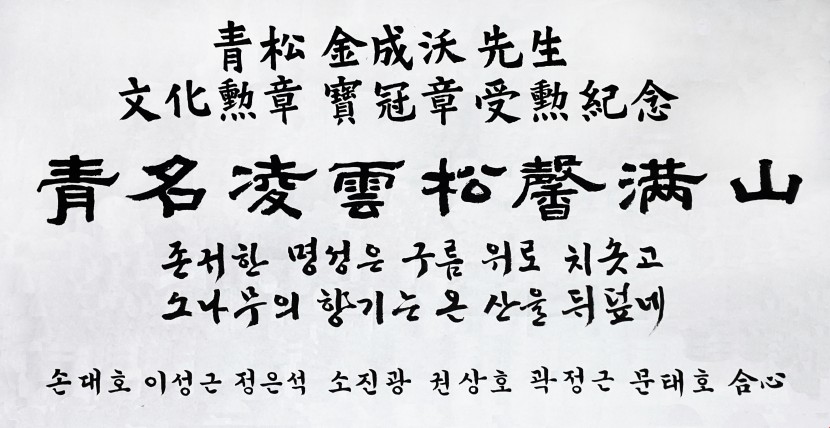 青松 金成沃 先生
文化勳章 寶冠章 受勳紀念
青名凌雲松馨满山
존귀한 명성은 구름 위로 치솟고
소나무의 향기는 온 산을 뒤덮네
손대호 이성근 정은석 소진광 권상호 곽정근 문태호 合心